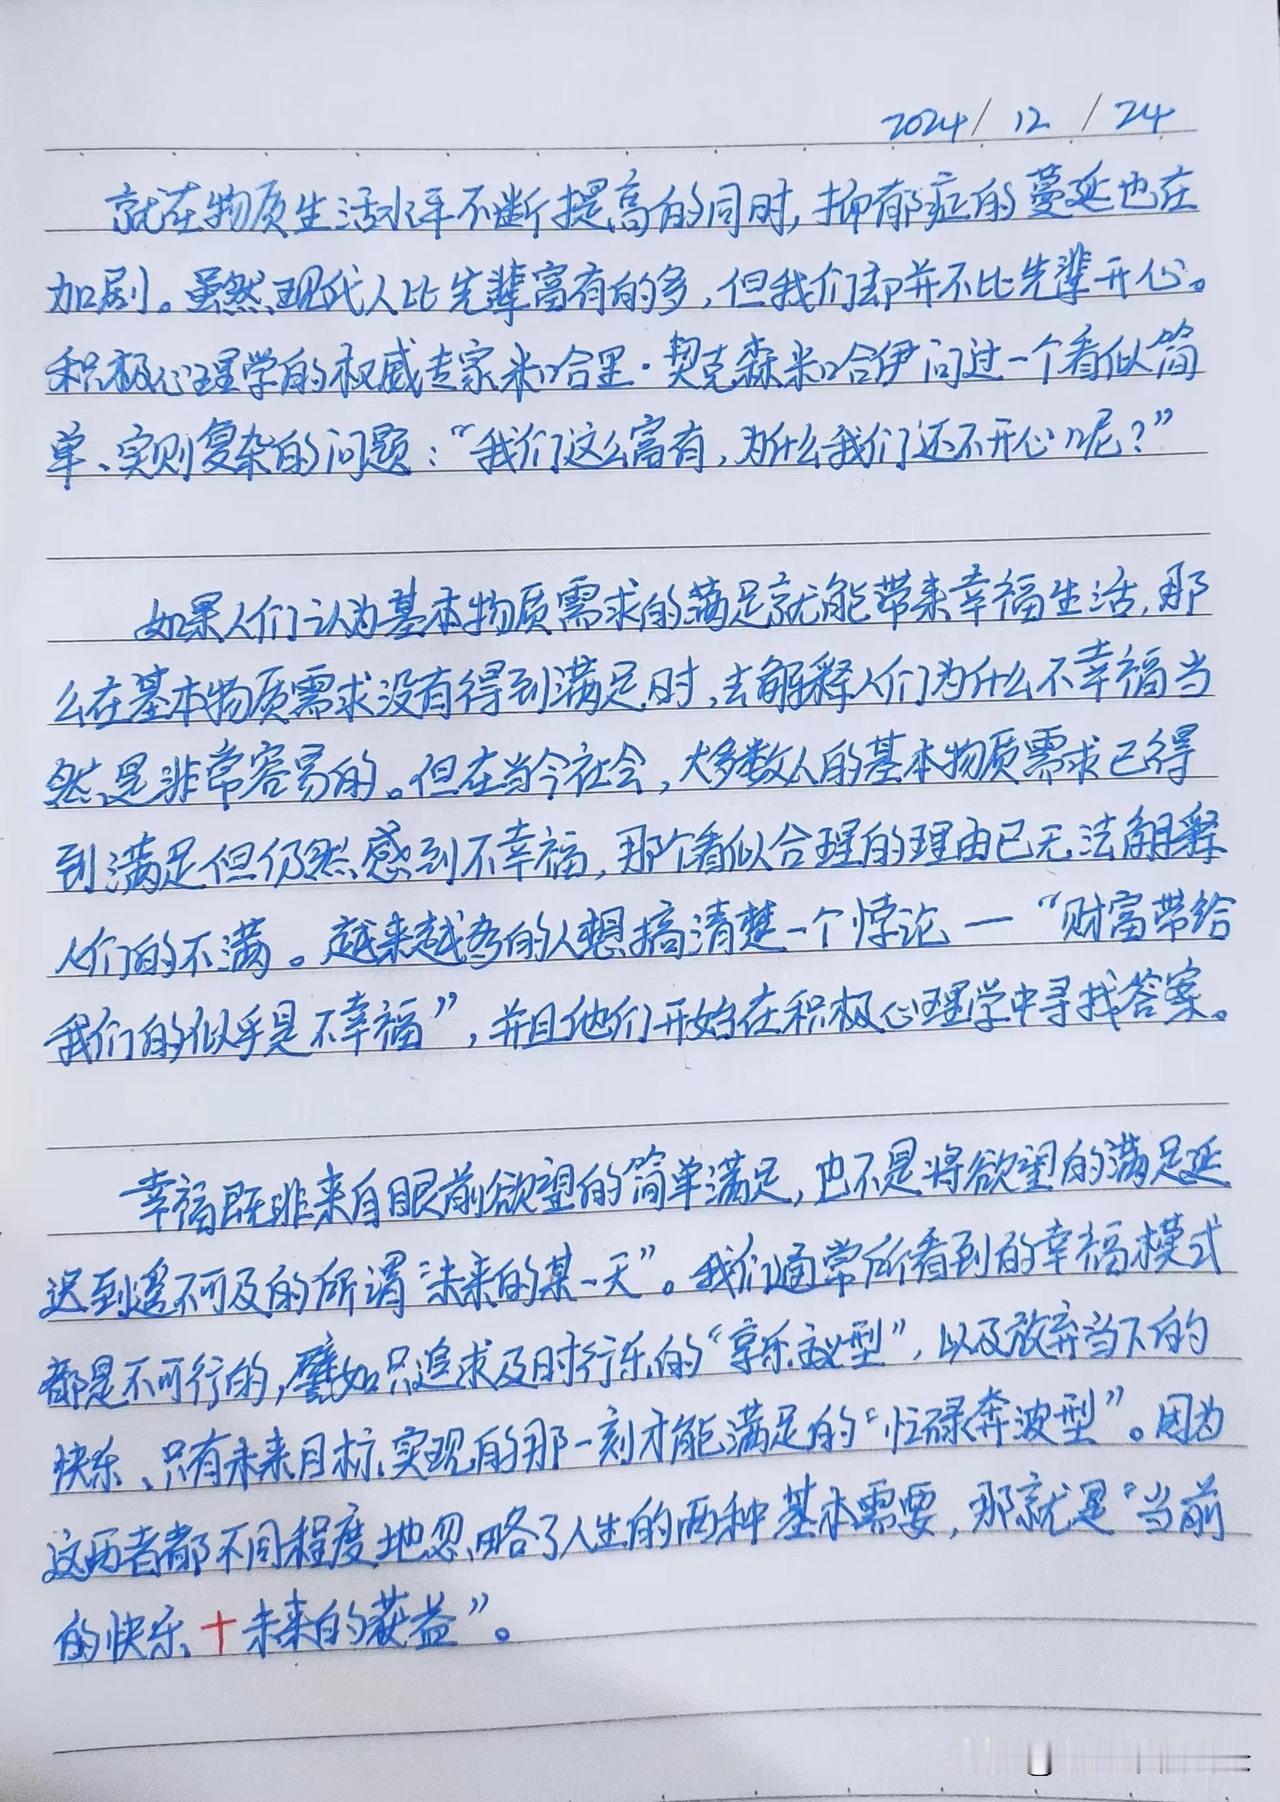 2024/12/24
就在物质生活水平不断提高的同时，抑郁症的蔓延也在
加剧。虽然现代人比先辈富有的多，但我们却并不比先辈开心。
积极心理学的权威专家米哈里·契克森米哈伊问过一个看似简
单、实则复杂的问题：“我们这么富有，为什么我们还不开心呢？”
如果人们认为基本物质需求的满足就能带来幸福生活，那
么在基本物质需求没有得到满足时，去解释人们为什么不幸福当
然是非常容易的。但在当今社会，大多数人的基本物质需求已得
到满足但仍然感到不幸福，那个看似合理的理由已无法解释
人们的不满。越来越多的人想搞清楚一个悖论—“财富带给
我们的似乎是不幸福”，并且他们开始在积极心理学中寻找答案。
幸福既非来自眼前欲望的简单满足，也不是将欲望的满足延
迟到遥不可及的所谓“未来的某一天”。我们通常所看到的幸福模式
都是不可行的，譬如只追求及时行乐的“享乐主义型”，以及放弃当下的
快乐、只有未来目标实现的那一刻才能满足的“忙碌奔波型”。因为
这两者都不同程度地忽略了人生的两种基本需要，那就是“当前
的快乐+未来的获益”。